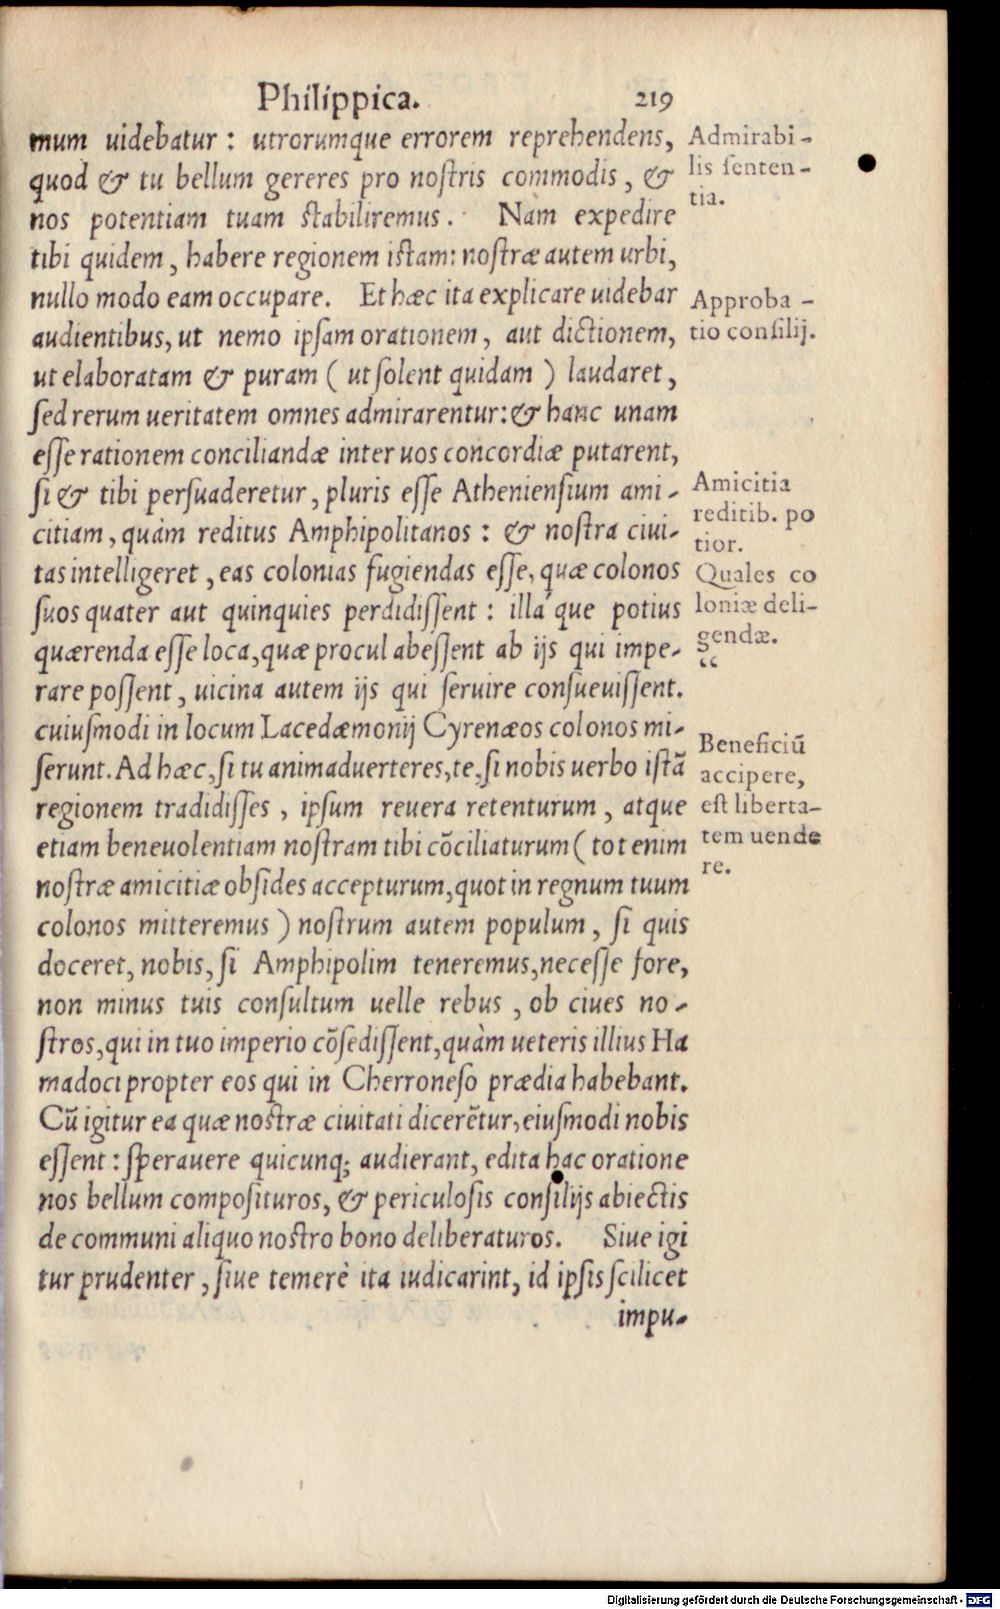 Philippica. 219
mum uidebatur: utrorumque errorem reprehendens,
quod & tu bellum gereres pro nostris commodis, &
nos potentiam tuam stabiliremus. Nam expedire
tibi quidem, habere regionem istam: nostræ autem urbi,
nullo modo eam occupare. Et hæc ita explicare uidebar
audientibus, ut nemo ipsam orationem, aut dictionem,
ut elaboratam & puram (ut solent quidam) laudaret,
sed rerum ueritatem omnes admirarentur: & hanc unam
esse rationem conciliandæ inter uos concordiæ putarent,
si & tibi persuaderetur, pluris esse Atheniensium ami-
citiam, quàm reditus Amphipolitanos: & nostra ciui-
tas intelligeret, eas colonias fugiendas esse, quæ colonos
suos quater aut quinquies perdidissent: illáque potius
quærenda esse loca, quæ procul abessent ab ijs qui impe-
rare possent, uicina autem ijs qui seruire consueuissent.
cuiusmodi in locum Lacedæmonij Cyrenæos colonos mi-
serunt. Ad hæc, si tu animaduerteres, te, si nobis uerbo istã
regionem tradidisses, ipsum reuera retenturum, atque
etiam beneuolentiam nostram tibi cõciliaturum (tot enim
nostræ amicitiæ obsides accepturum, quot in regnum tuum
colonos mitteremus) nostrum autem populum, si quis
doceret, nobis, si Amphipolim teneremus, necesse fore,
non minus tuis consultum uelle rebus, ob ciues no-
stros, qui in tuo imperio cõsedissent, quàm ueteris illius Ha
madoci propter eos qui in Cherroneso prædia habebant.
Cũ igitur ea quæ nostræ ciuitati dicerẽtur, eiusmodi nobis
essent: sperauere quicunq; audierant, edita hac oratione
nos bellum composituros, & periculosis consilijs abiectis
de communi aliquo nostro bono deliberaturos. Siue igi
tur prudenter, siue temerè ita iudicarint, id ipsis scilicet
impu-
Admirabi-
lis senten-
tia.
Approba-
tio consilij.
Amicitia
reditib. po
tior.
Quales co
loniæ deli-
gendæ.
“
Beneficiũ
accipere,
est liberta-
tem uende
re.
Digitalisierung gefördert durch die Deutsche Forschungsgemeinschaft - DFG